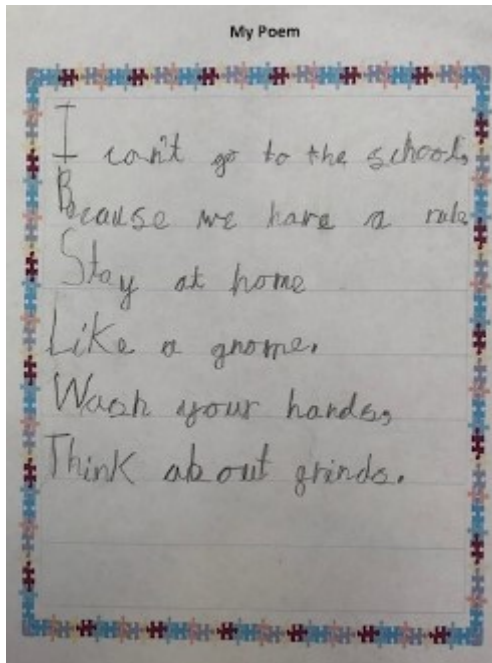 My Poem
I can't go to the school,
Because we have a rule
Stay at home
Like a gnome.
Wash your hands,
Think about grinds.